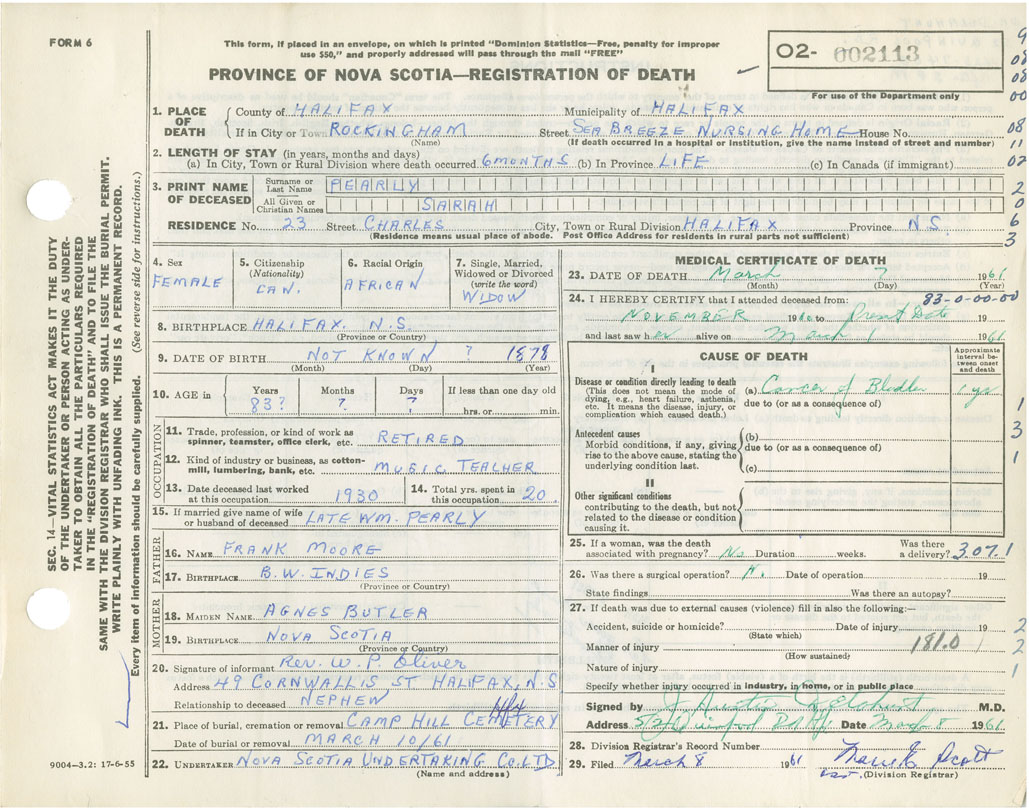 FORM 6
This form, if placed in an envelope, on which is printed "Dominion Statistics—Free, penalty for improper
use $50," and properly addressed will pass through the mail "FREE"
PROVINCE OF NOVA SCOTIA—REGISTRATION OF DEATH
02- 002113
For use of the Department only
SEC. 14—VITAL STATISTICS ACT MAKES IT THE DUTY
OF THE UNDERTAKER OR PERSON ACTING AS UNDER-
TAKER TO OBTAIN ALL THE PARTICULARS REQUIRED
IN THE "REGISTRATION OF DEATH" AND TO FILE THE
SAME WITH THE DIVISION REGISTRAR WHO SHALL ISSUE THE BURIAL PERMIT.
WRITE PLAINLY WITH UNFADING INK. THIS IS A PERMANENT RECORD.
Every item of information should be carefully supplied. (See reverse side for instructions.)
1. PLACE OF DEATH
County of HALIFAX Municipality of HALIFAX
If in City or Town ROCKINGHAM Street SEA BREEZE NURSING HOME House No.
(Name) (If death occurred in a hospital or institution, give the name instead of street and number)
2. LENGTH OF STAY (in years, months and days)
(a) In City, Town or Rural Division where death occurred 6 MONTHS (b) In Province LIFE (c) In Canada (if immigrant)
3. PRINT NAME OF DECEASED
Surname or Last Name PEARLY
All Given or Christian Names SARAH
RESIDENCE No. 23 Street CHARLES City, Town or Rural Division HALIFAX Province N.S.
(Residence means usual place of abode. Post Office Address for residents in rural parts not sufficient)
4. Sex
FEMALE
5. Citizenship (Nationality)
CAN.
6. Racial Origin
AFRICAN
7. Single, Married, Widowed or Divorced (write the word)
WIDOW
8. BIRTHPLACE HALIFAX. N.S.
(Province or Country)
9. DATE OF BIRTH NOT KNOWN ? 1878
(Month) (Day) (Year)
10. AGE in
Years Months Days If less than one day old
83? ? ? hrs. or min.
OCCUPATION
11. Trade, profession, or kind of work as spinner, teamster, office clerk, etc. RETIRED
12. Kind of industry or business, as cotton-mill, lumbering, bank, etc. MUSIC TEACHER
13. Date deceased last worked at this occupation 1930
14. Total yrs. spent in this occupation 20
15. If married give name of wife or husband of deceased LATE WM. PEARLY
FATHER
16. NAME FRANK MOORE
17. BIRTHPLACE B.W. INDIES
(Province or Country)
MOTHER
18. MAIDEN NAME AGNES BUTLER
19. BIRTHPLACE NOVA SCOTIA
(Province or Country)
20. Signature of informant Rev. W. P. Oliver
Address 49 CORNWALLIS ST HALIFAX, N.S
Relationship to deceased NEPHEW
21. Place of burial, cremation or removal CAMP HILL CEMETERY
Date of burial or removal MARCH 10/61
22. UNDERTAKER NOVA SCOTIA UNDERTAKING CO. LTD
(Name and address)
9004—3.2: 17-6-55
MEDICAL CERTIFICATE OF DEATH
23. DATE OF DEATH March 7 1961
(Month) (Day) (Year)
24. I HEREBY CERTIFY that I attended deceased from: 83-0-00-00
NOVEMBER 1960 to Present Date 19
and last saw her alive on March 1 1961
CAUSE OF DEATH
Approximate interval between onset and death
I
Disease or condition directly leading to death
(This does not mean the mode of dying, e.g., heart failure, asthenia, etc. It means the disease, injury, or complication which caused death.)
(a) Cancer of Bladder yr
due to (or as a consequence of)
Antecedent causes
Morbid conditions, if any, giving rise to the above cause, stating the underlying condition last.
(b)
due to (or as a consequence of)
(c)
II
Other significant conditions
contributing to the death, but not related to the disease or condition causing it.
25. If a woman, was the death associated with pregnancy? No Duration weeks. Was there a delivery? 3071
26. Was there a surgical operation? N. Date of operation 19
State findings Was there an autopsy?
27. If death was due to external causes (violence) fill in also the following:—
Accident, suicide or homicide? Date of injury 19
(State which)
Manner of injury 181.0
(How sustained)
Nature of injury
Specify whether injury occurred in industry, in home, or in public place
Signed by M.D.
Address Date March 8 1961
28. Division Registrar's Record Number
29. Filed March 8 1961 Scott
(Division Registrar)